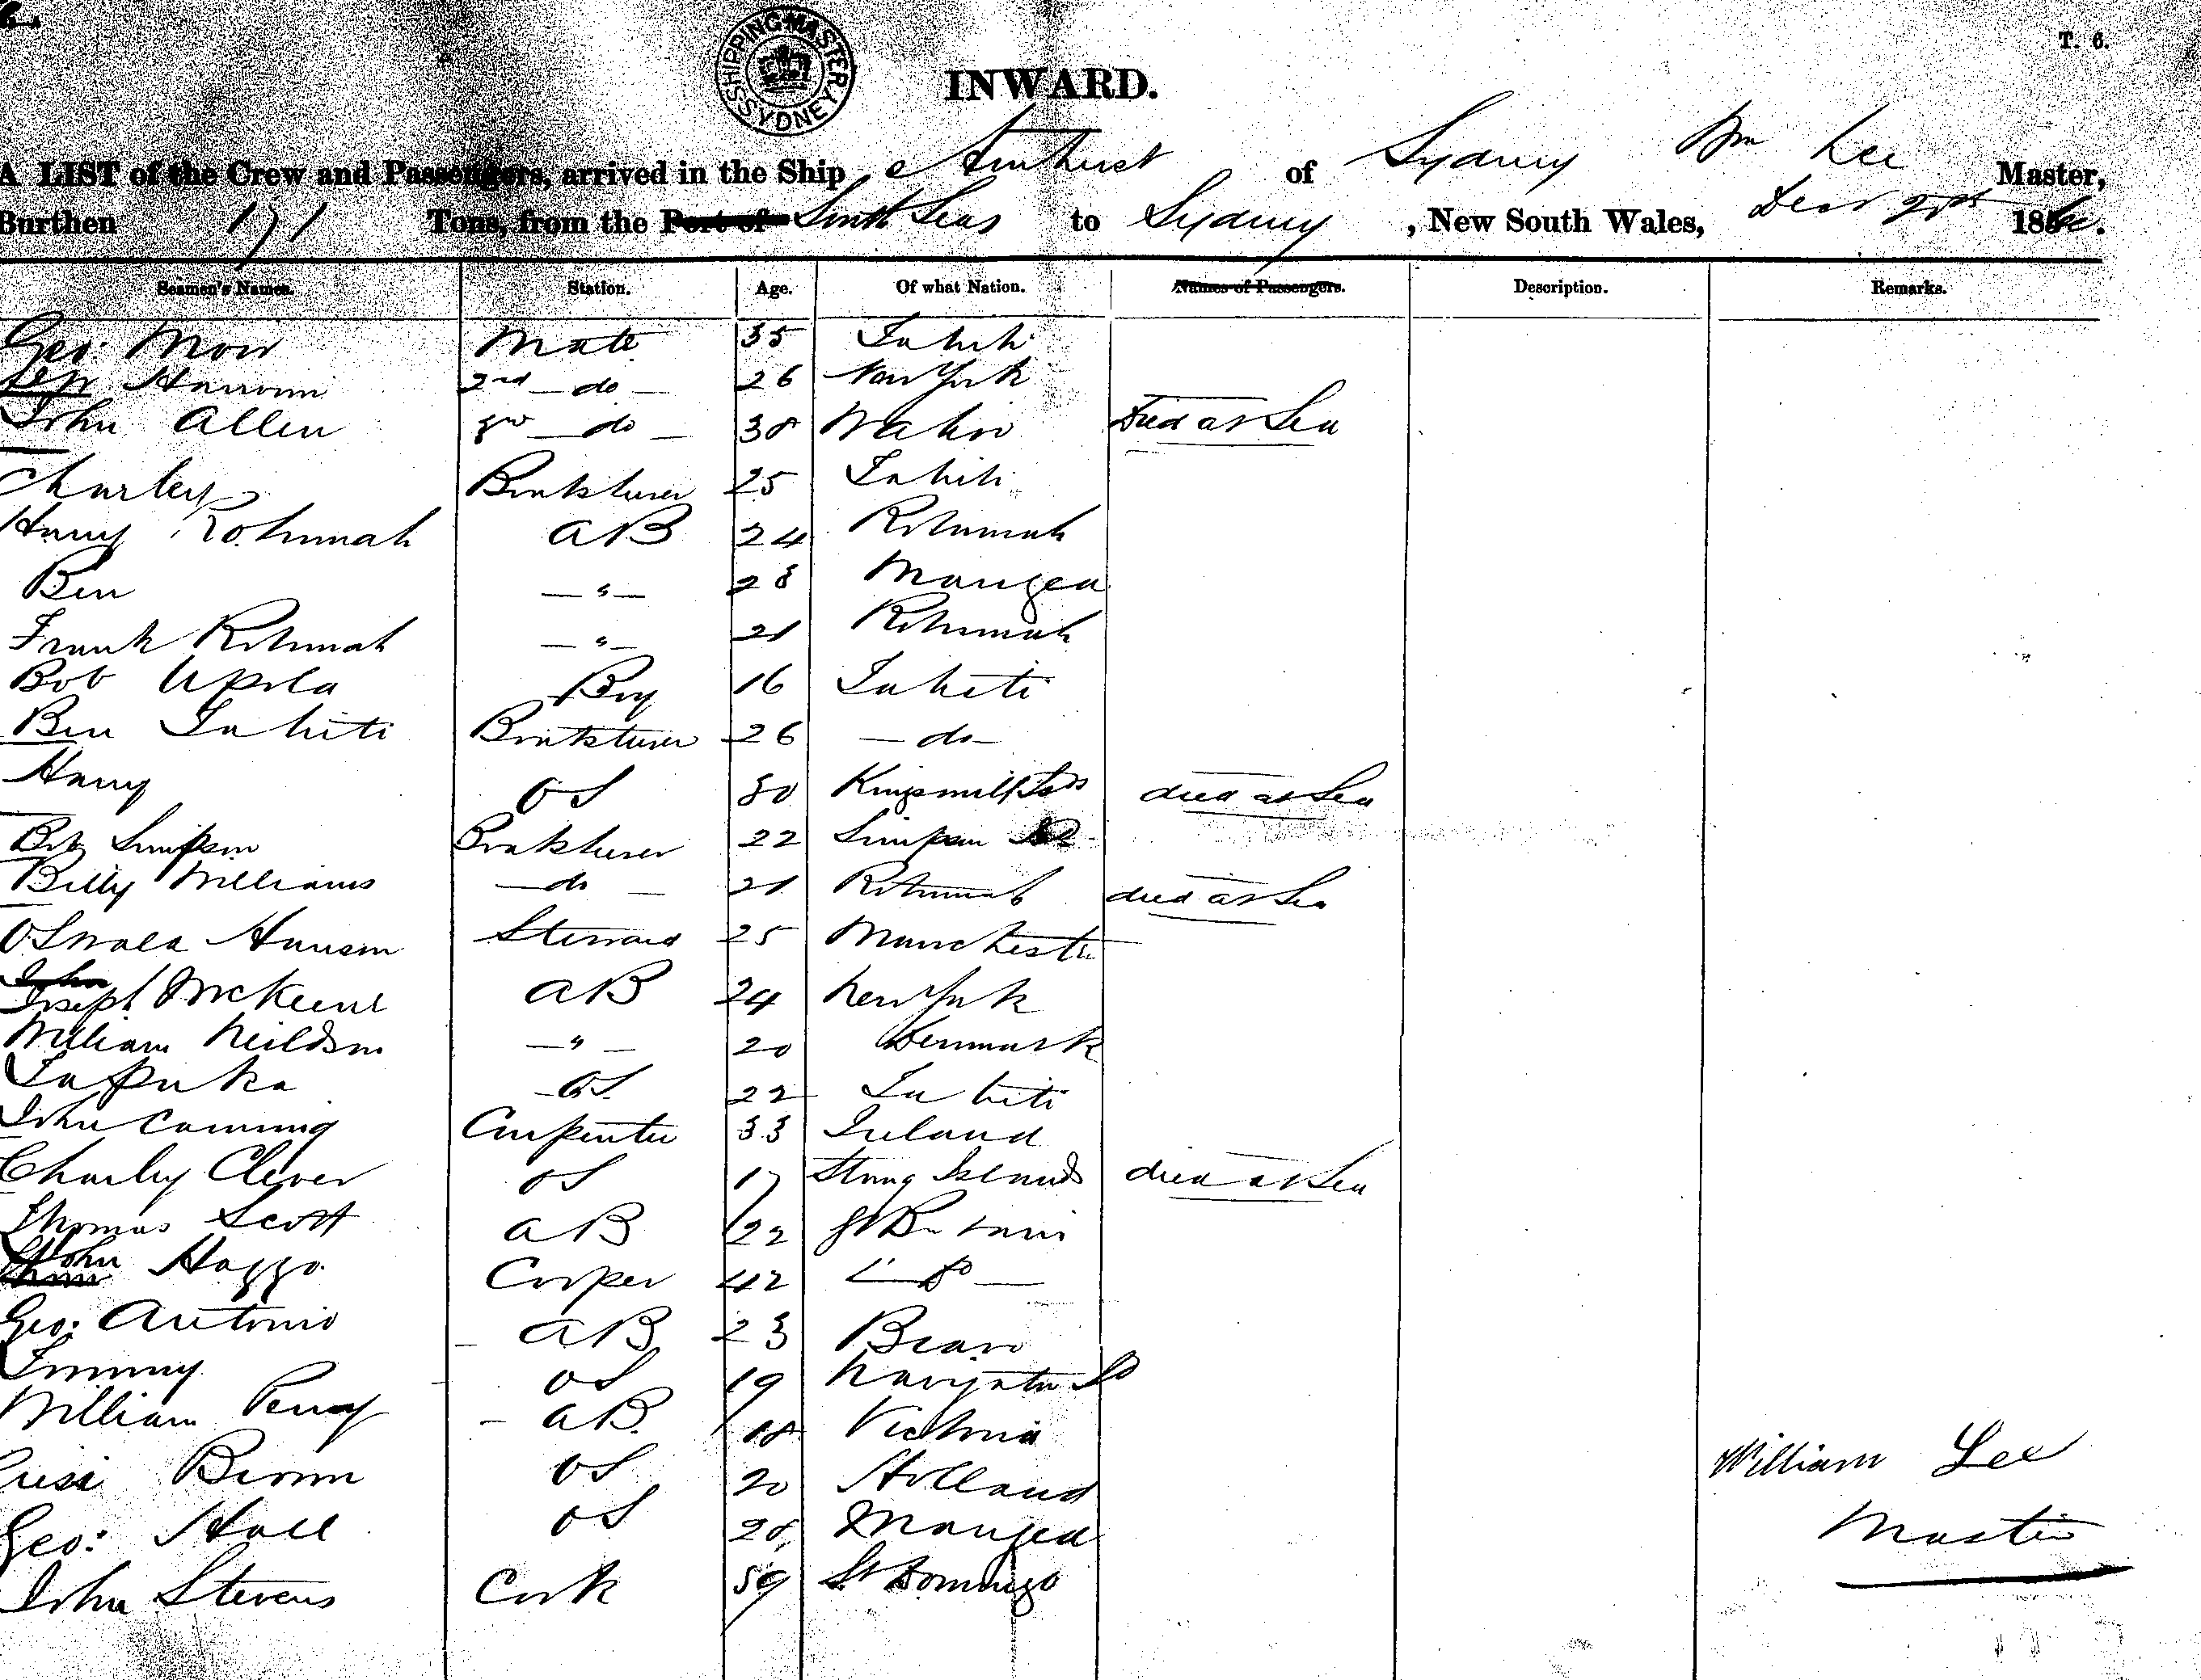 T. 6.
SHIPPING MASTER SYDNEY
INWARD.
A LIST of the Crew and Passengers, arrived in the Ship Amherst of Sydney Wm Lee Master,
Burthen 171 Tons, from the Port of South Seas to Sydney, New South Wales, 186
Seamen's Names. Station. Age. Of what Nation. Names of Passengers. Description. Remarks.
Geo. Mate 35 Tahiti
2nd do 26 New York
John Allen 3rd do 38 Died at Sea
Charley Boatsteerer 25 Tahiti
Harry Rotumah AB 24 Rotumah
Ben " 28 Mangea
Frank Rotumah " 21 Rotumah
Bob Upola Boy 16 Tahiti
Ben Tahiti Boatsteerer 26 do
Harry OS 30 Kingsmill Isds died at Sea
Bob Simpson Boatsteerer 22 Simpson Is
Billy Williams do 21 Rotumah died at Sea
Oswald Hanson Steward 25 Manchester
John
Joseph McKeene AB 24 New York
William Neildsen " 20 Denmark
Tapuka OS 22 Tahiti
John Canning Carpenter 33 Ireland
Charley Clever OS 17 Strong Islands died at Sea
Thomas Scott AB 22 Gt Britain
John Haggo Cooper 42 Do
Geo: Antonio AB 23 Bravo
Jimmy OS 19 Navigator Is
William Perry AB 18 Victoria
Brown OS 20 Holland
William Lee
Geo: Hall OS 28 Mangea
Master
John Stevens Cook 59 St Domingo